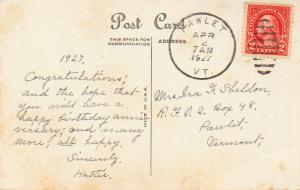 Post Card
THIS SPACE FOR
COMMUNICATION
ADDRESS
PAWLET
APR
2
7 AM
1927
VT.
1927.
Congratulations;
and the hope that
you will have a
happy birthday anni-
versary; and many
more, all happy.
Sincerely,
Hattie.
MADE IN U.S.A.
Mrs. Ira F. Sheldon,
R.F.D.2. Box 48,
Pawlet,
Vermont,